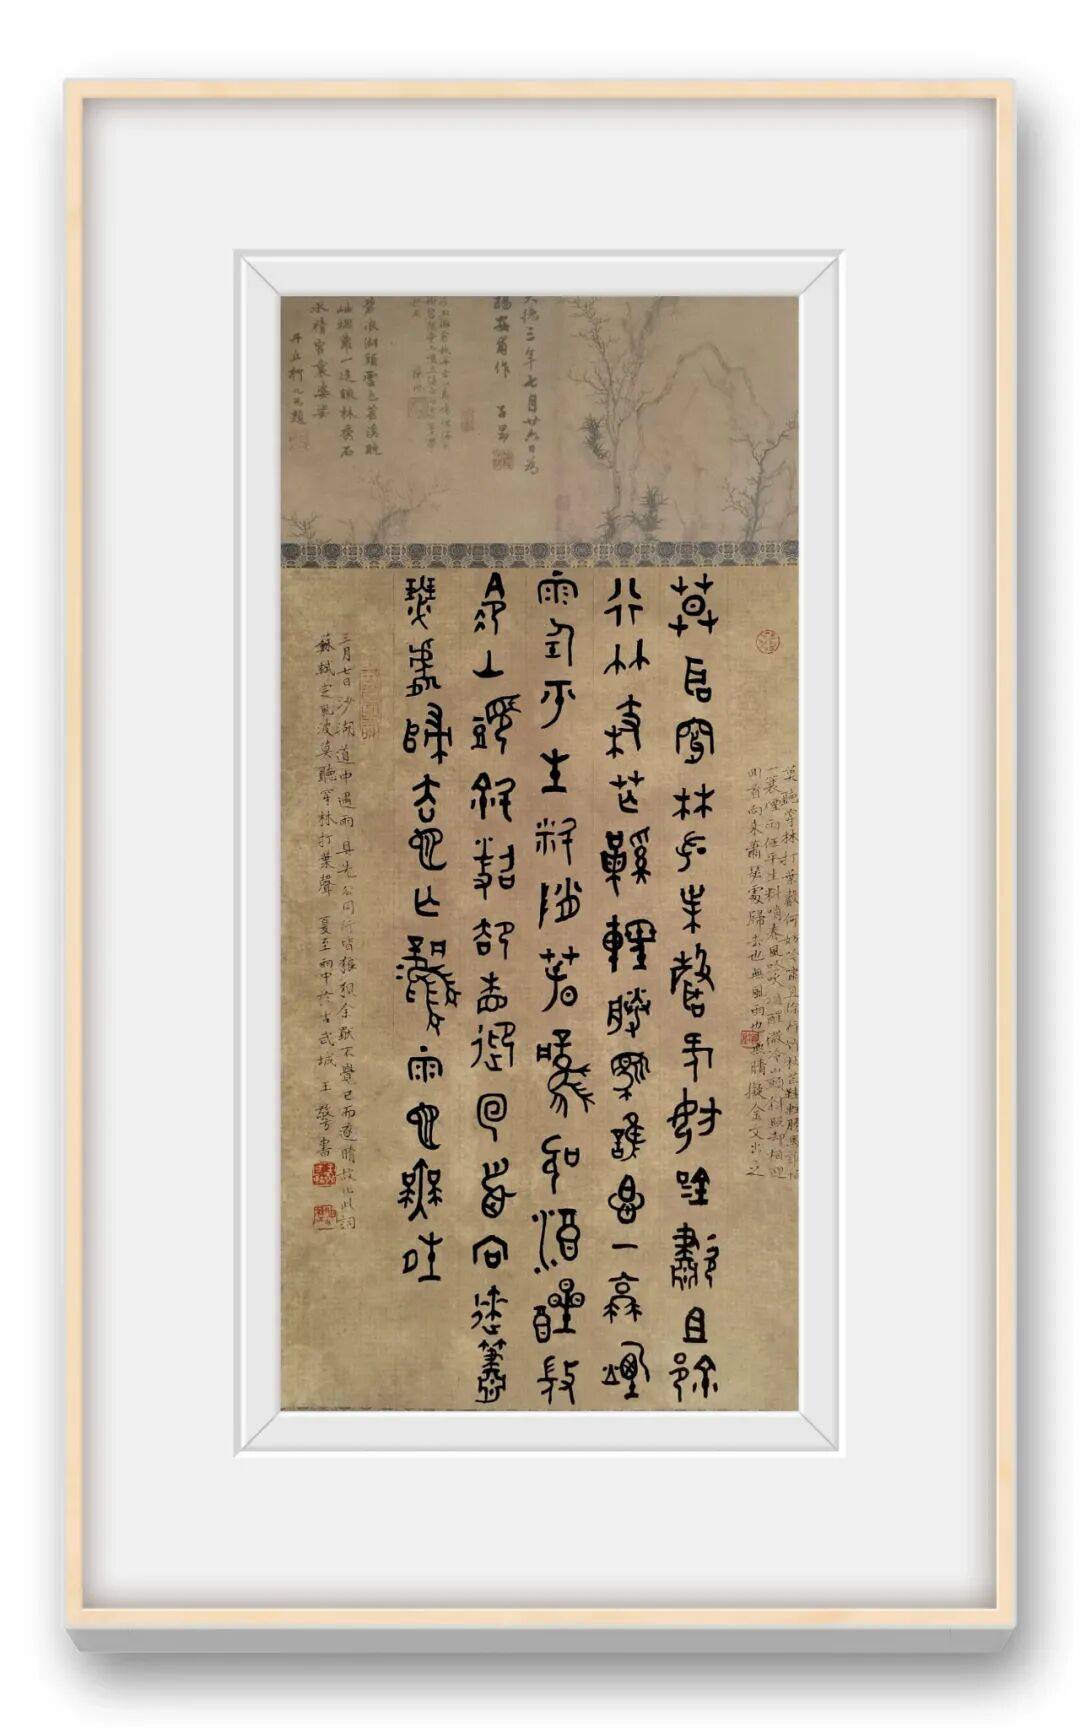 大德三年七月廿六日為
作 子昂
莫聽穿林打葉聲何妨吟嘯且徐行竹杖芒鞋輕勝馬誰怕
一蓑煙雨任平生料峭春風吹酒醒微冷山頭斜照卻相迎
回首向來蕭瑟處歸去也無風雨也無晴擬金文出之
莫聽穿林打葉聲何妨吟嘯且徐
行竹杖芒鞋輕勝馬誰怕一蓑煙
雨任平生料峭春風吹酒醒微
冷山頭斜照卻相迎回首向來蕭
瑟處歸去也無風雨也無晴
三月七日沙湖道中遇雨具先公同行皆狼狽余獨不覺已而遂晴故作此詞
蘇軾定風波莫聽穿林打葉聲 夏至雨中於古武城 王書